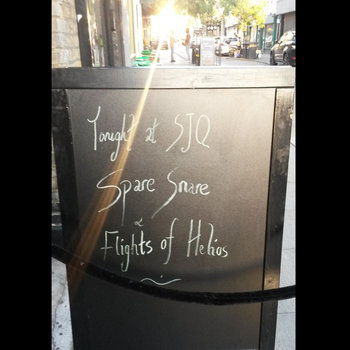 Tonight at SJQ
Spare Snare
&
Flights of Helios